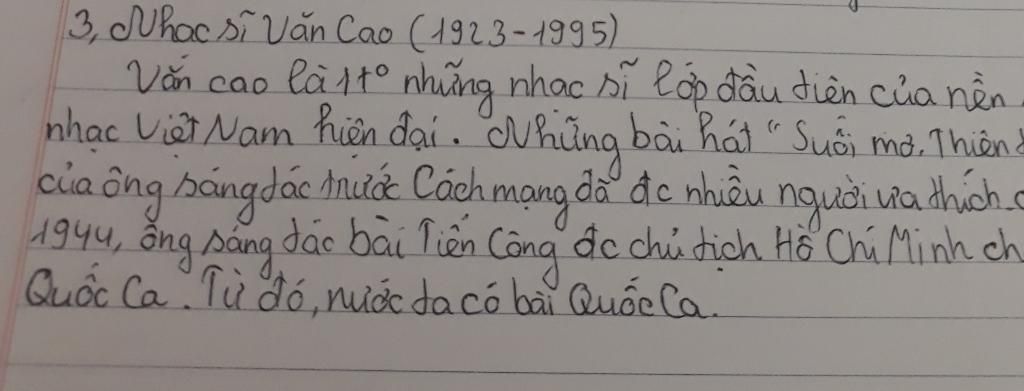 3, Nhạc sĩ Văn Cao (1923-1995)
Văn cao là 1 tº những nhạc sĩ lớp đầu tiên của nền
nhạc Việt Nam hiện đại. Những bài hát "Suối mơ, Thiên
của ông sáng tác trước Cách mạng đã đc nhiều người ưa thích.
1944, ông sáng tác bài Tiến Công đc chủ tịch Hồ Chí Minh ch
Quốc Ca. Từ đó, nước ta có bài Quốc Ca.